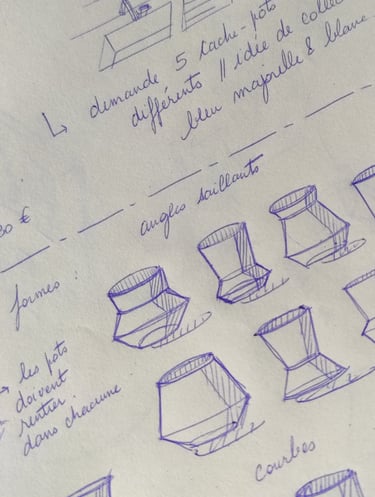 demande 5 cache-pots
différents // idée de collec
bleu majorelle & blanc
30 €
angles saillants
formes :
→ les pots
doivent
rentrer
dans chacune
courbes